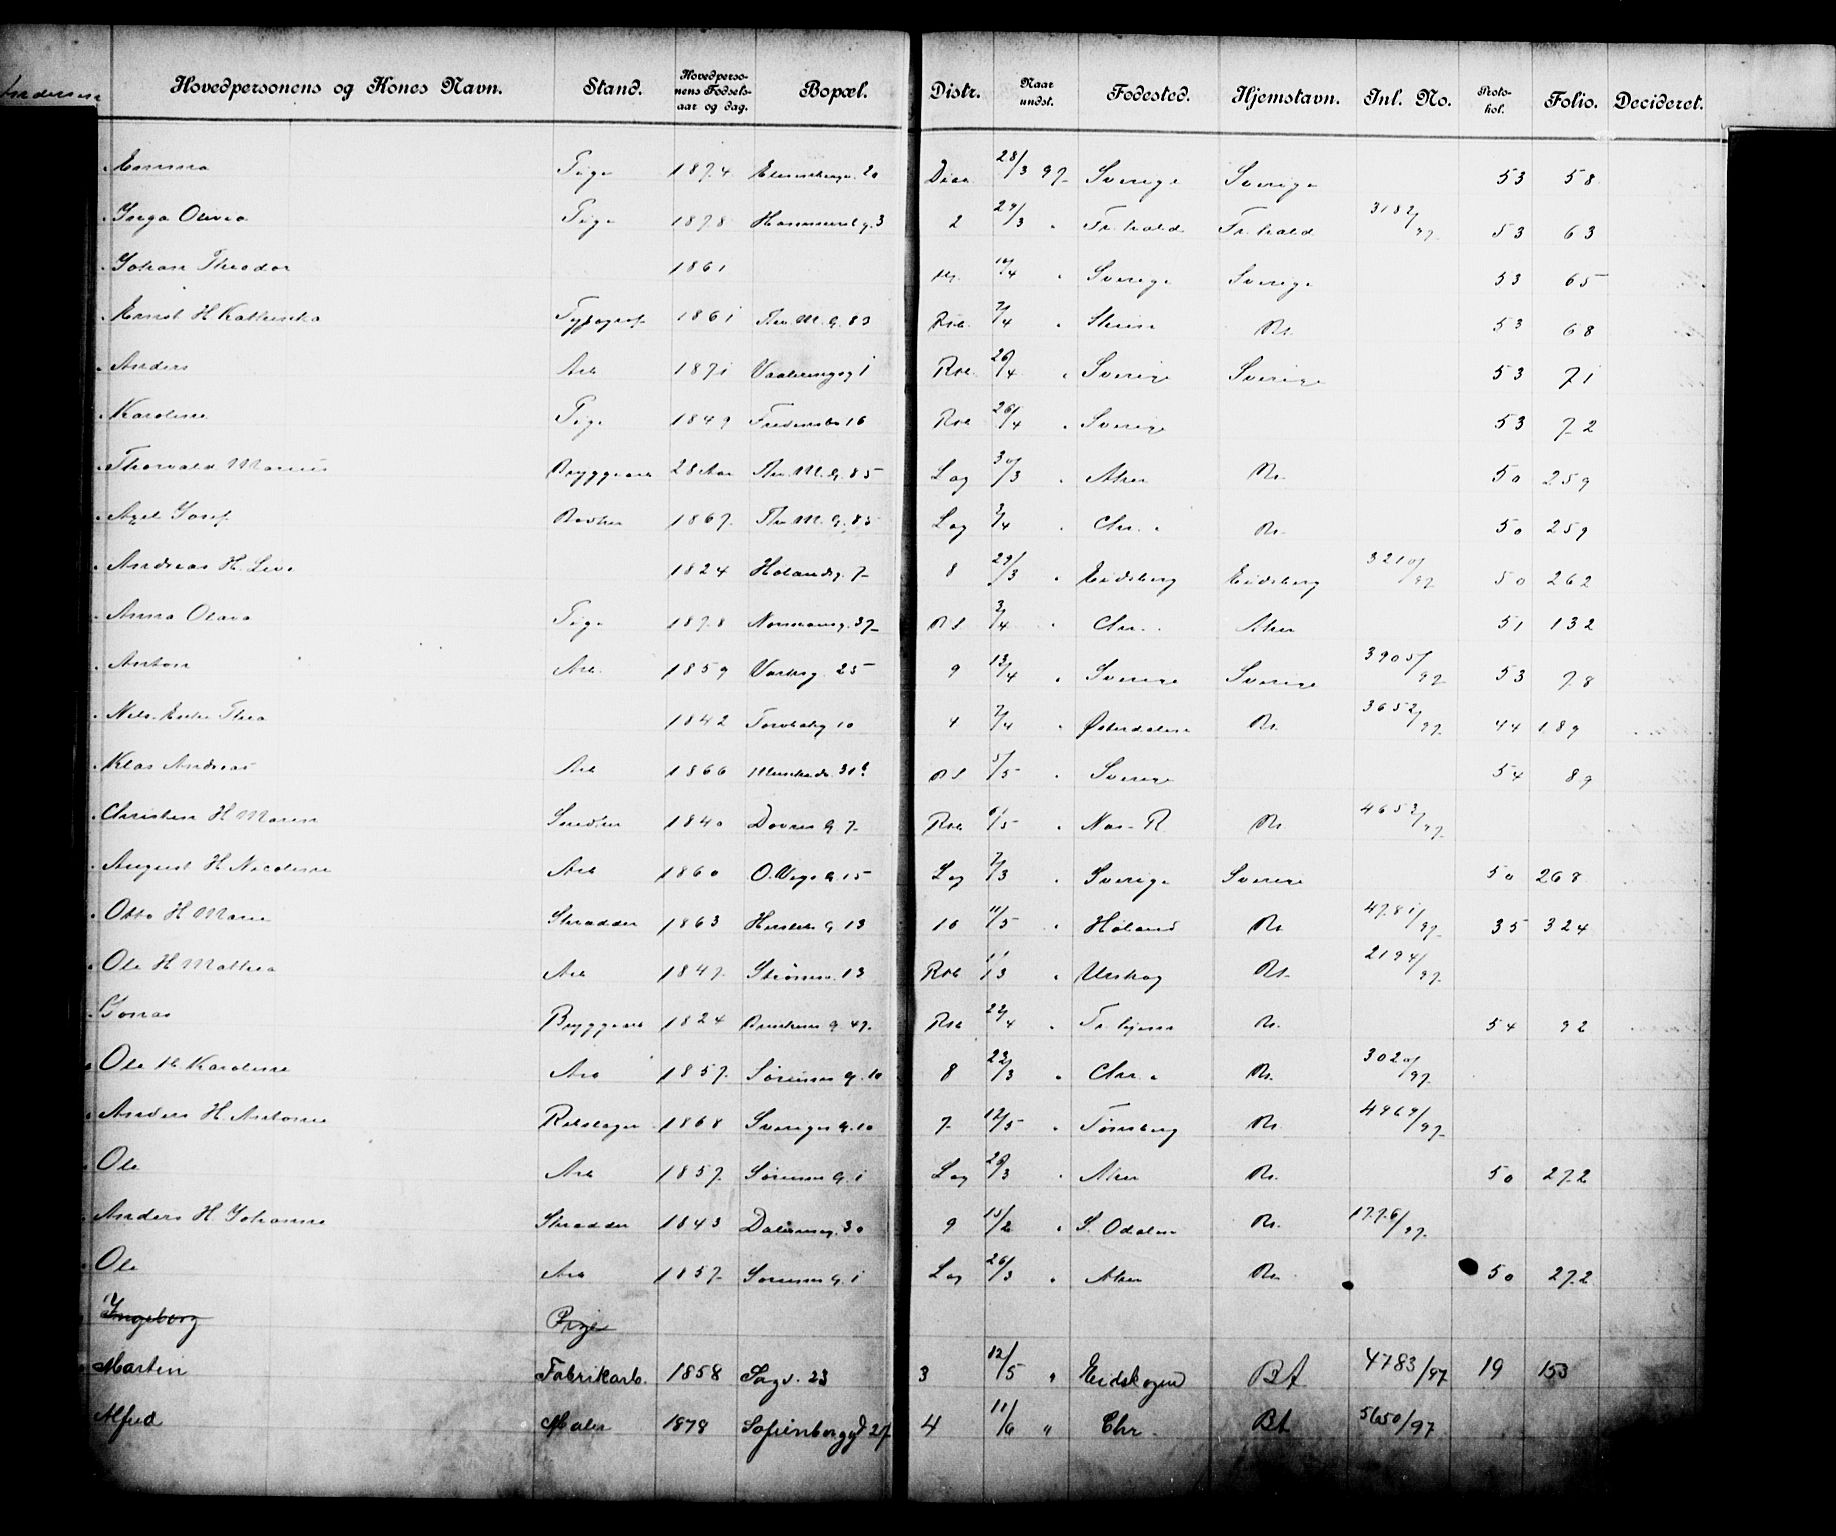 Andersen
Hovedpersonens og Kones Navn. Stand. Hovedpersonens Fødselsaar og dag. Bopæl. Distr. Naar undst. Fødested. Hjemstavn. Jnl. No. Protokol. Folio. Decideret.
Emma Pige 1874 20 28/3 97 Sverige Sverige 53 58
Inga Olivia Pige 1878 3 2 29/3 " Fr.hald Fr.hald 3182/97 53 63
Johan Theodor 1861 /4 " Sverige Sverige 53 65
Ernst H Typograf 1861 Thv. M. G. 83 Rod. 7/4 " Bt. 53 68
Anders Arb 1871 Vaalerengg 1 Rod. 26/4 " Sverige Sverige 53 71
Karoline Pige 1849 Fredensbo 16 Rod 26/4 " Sverige 53 72
Thorvald Marius Bryggearb 28 Aar Thv. M. G. 85 Lag 30/3 " Aker Bt. 50 259
Axel Josef Bødker 1867 Thv. M. G. 85 Lag 3/4 " Chr. " Bt. 50 259
Andreas H. Live 1824 Hølandsg. 7 8 29/3 " Eidsberg Eidsberg 3210/97 50 262
Anna Olava Pige 1878 Normannsg. 37 Bt 3/4 " Chr. Aker 51 132
Anton Arb. 1859 25 9 13/4 " Sverige Sverige 3905/97 53 78
Nils Enke Thea 1842 Torvbakg 10 4 7/4 " Østerdalen Bt. 3652/97 44 189
Klas Andreas Arb 1866 Bt 5/5 " Sverige 54 89
Christen H Maren Snedker 1840 Dovre G 7 Rod. 6/5 " Nes - R. Bt. 4653/97
August H Nicoline Arb 1860 O. Vogs G. 15 Lag 7/3 " Sverige Sverige 50 268
Otto H Marie Skrædder 1863 Herslebs G 13 10 11/5 " Høland Bt. 4781/97 35 324
Ole H Mathea Arb 1847 Strømsv. 13 Rod 11/3 " Urskog Bt. 2194/97
Jonas Bryggearb 1824 G 47 Rod 22/4 " Tr.hjem Bt. 54 92
Ole H. Karoline Arb 1857 Sørensen G. 10 8 22/3 " Chr. " Bt. 3020/97
Anders H. Antonie Rebslager 1868 Sveriges G. 10 7 12/5 " Tønsberg Bt. 4969/97
Ole Arb 1857 Sørensen G. 1 Lag 26/3 " Aker Bt. 50 272
Anders H. Johanne Skrædder 1843 Dalenens g. 30 9 15/2 " S. Odalen Bt. 1776/97
Ole Arb 1857 Sørensen G. 1 Lag 26/3 " Aker Bt. 50 272
Ingeborg Pige
Martin Fabrikarb. 1858 Sagv. 23 3 12/5 " Eidskogen Bt 4783/97 19 153
Alfred Maler 1878 Sofienberggd 27 4 11/6 " Chr. Bt 5650/97